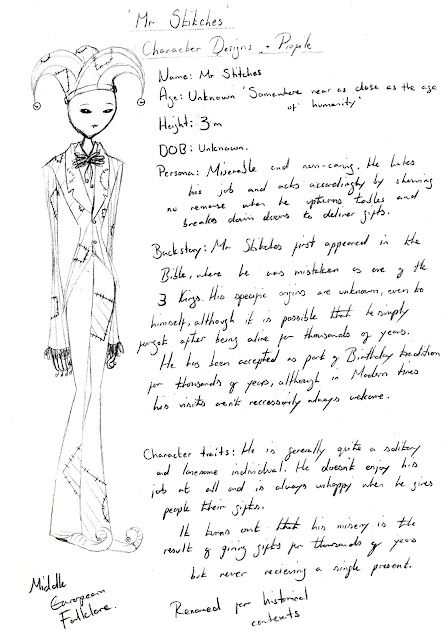 'Mr Stitches'
Character Designs + Profile
Name: Mr Stitches
Age: Unknown 'Somewhere near as close as the age
of humanity'
Height: 3m
DOB: Unknown.
Persona: Miserable and non-caring. He hates
his job and acts accordingly by showing
no remorse when he upturns tables and
breaks down doors to deliver gifts.
Backstory: Mr Stitches first appeared in the
Bible, where he was mistaken as one of the
3 Kings. His specific origins are unknown, even to
himself, although it is possible that he simply
forgot after being alive for thousands of years.
He has been accepted as part of Birthday tradition
for thousands of years, although in Modern times
his visits aren't neccessarily always welcome.
Character traits: He is generally quite a solitary
and lonesome individual. He doesn't enjoy his
job at all and is always unhappy when he gives
people their gifts.
It turns out that his misery is the
result of giving gifts for thousands of years
but never recieving a single present.
Middle
European
Folklore.
Renamed for historical
contexts